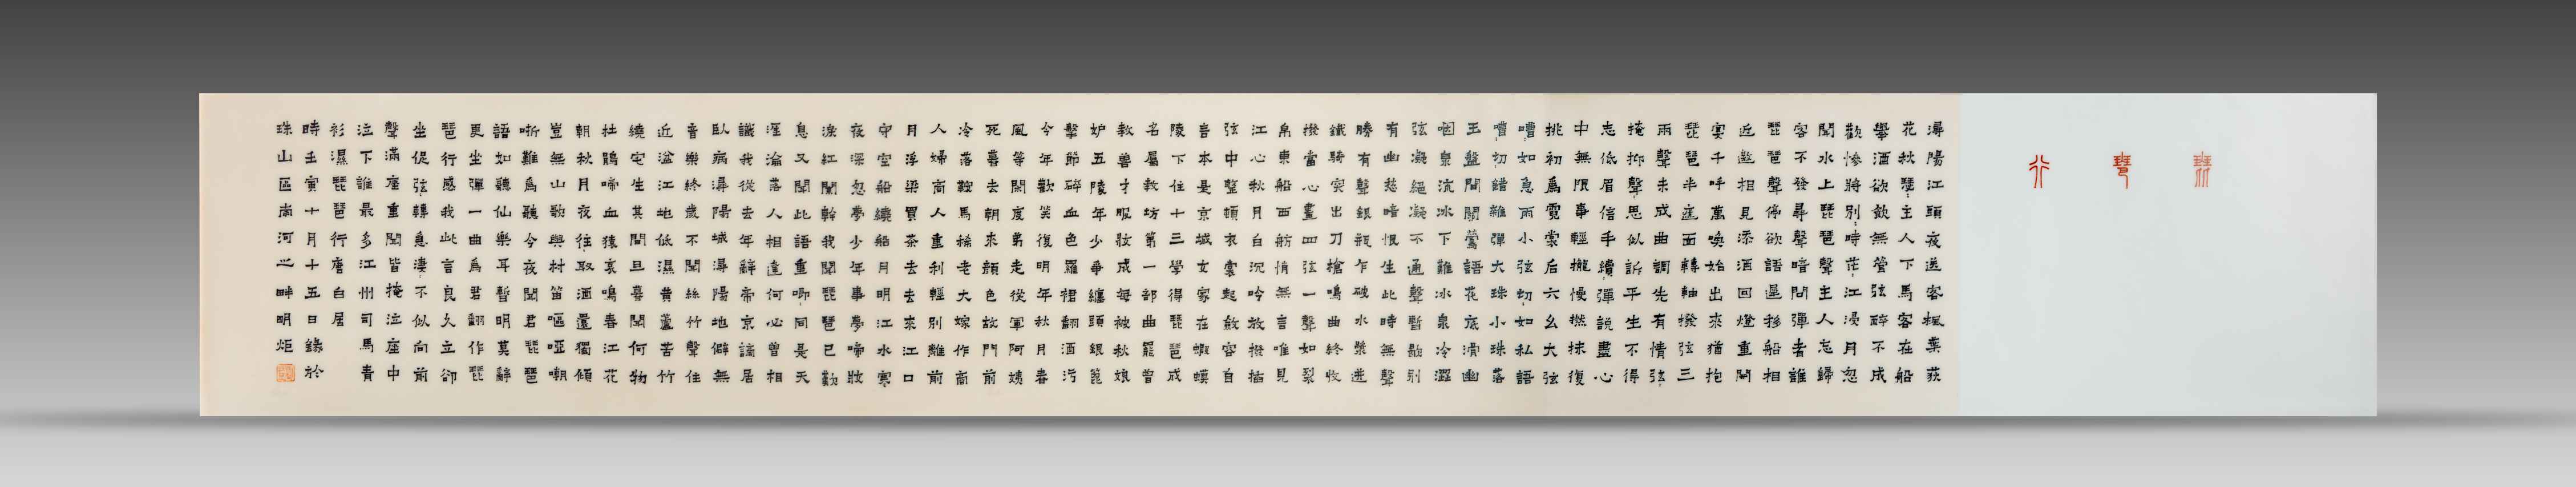 琵琶行
潯陽江頭夜送客楓葉荻
花秋瑟〻主人下馬客在船
舉酒欲飲無管弦醉不成
歡慘將別〻時茫〻江浸月忽
聞水上琵琶聲主人忘歸
客不發尋聲暗問彈者誰
琵琶聲停欲語遲移船相
近邀相見添酒回燈重開
宴千呼萬喚始出來猶抱
琵琶半遮面轉軸撥弦三
兩聲未成曲調先有情弦〻
掩抑聲〻思似訴平生不得
志低眉信手續〻彈說盡心
中無限事輕攏慢撚抹復
挑初為霓裳后六幺大弦
嘈〻如急雨小弦切〻如私語
嘈〻切〻錯雜彈大珠小珠落
玉盤間關鶯語花底滑幽
咽泉流冰下難冰泉冷澀
弦凝絕凝不通聲暫歇別
有幽愁暗恨生此時無聲
勝有聲銀瓶乍破水漿迸
鐵騎突出刀槍鳴曲終收
撥當心畫四弦一聲如裂
帛東船西舫悄無言唯見
江心秋月白沉吟放撥插
弦中整頓衣裳起斂容自
言本是京城女家在蝦蟆
陵下住十三學得琵琶成
名屬教坊第一部曲罷曾
教善才服妝成每被秋娘
妒五陵年少爭纏頭銀篦
擊節碎血色羅裙翻酒污
今年歡笑復明年秋月春
風等閒度弟走從軍阿姨
死暮去朝來顏色故門前
冷落鞍馬稀老大嫁作商
人婦商人重利輕別離前
月浮梁買茶去去來江口
守空船繞船月明江水寒
夜深忽夢少年事夢啼妝
淚紅闌幹我聞琵琶已歎
息又聞此語重唧〻同是天
涯淪落人相逢何必曾相
識我從去年辭帝京謫居
臥病潯陽城潯陽地僻無
音樂終歲不聞絲竹聲住
近湓江地低濕黃蘆苦竹
繞宅生其間旦暮聞何物
杜鵑啼血猿哀鳴春江花
朝秋月夜往取酒還獨傾
豈無山歌與村笛嘔啞嘲
哳難為聽今夜聞君琵琶
語如聽仙樂耳暫明莫辭
更坐彈一曲為君翻作琵
琶行感我此言良久立卻
坐促弦轉急淒〻不似向前
聲滿座重聞皆掩泣座中
泣下誰最多江州司馬青
衫濕琵琶行唐白居
時壬寅十月十五日錄於
珠山區南河之畔明炬